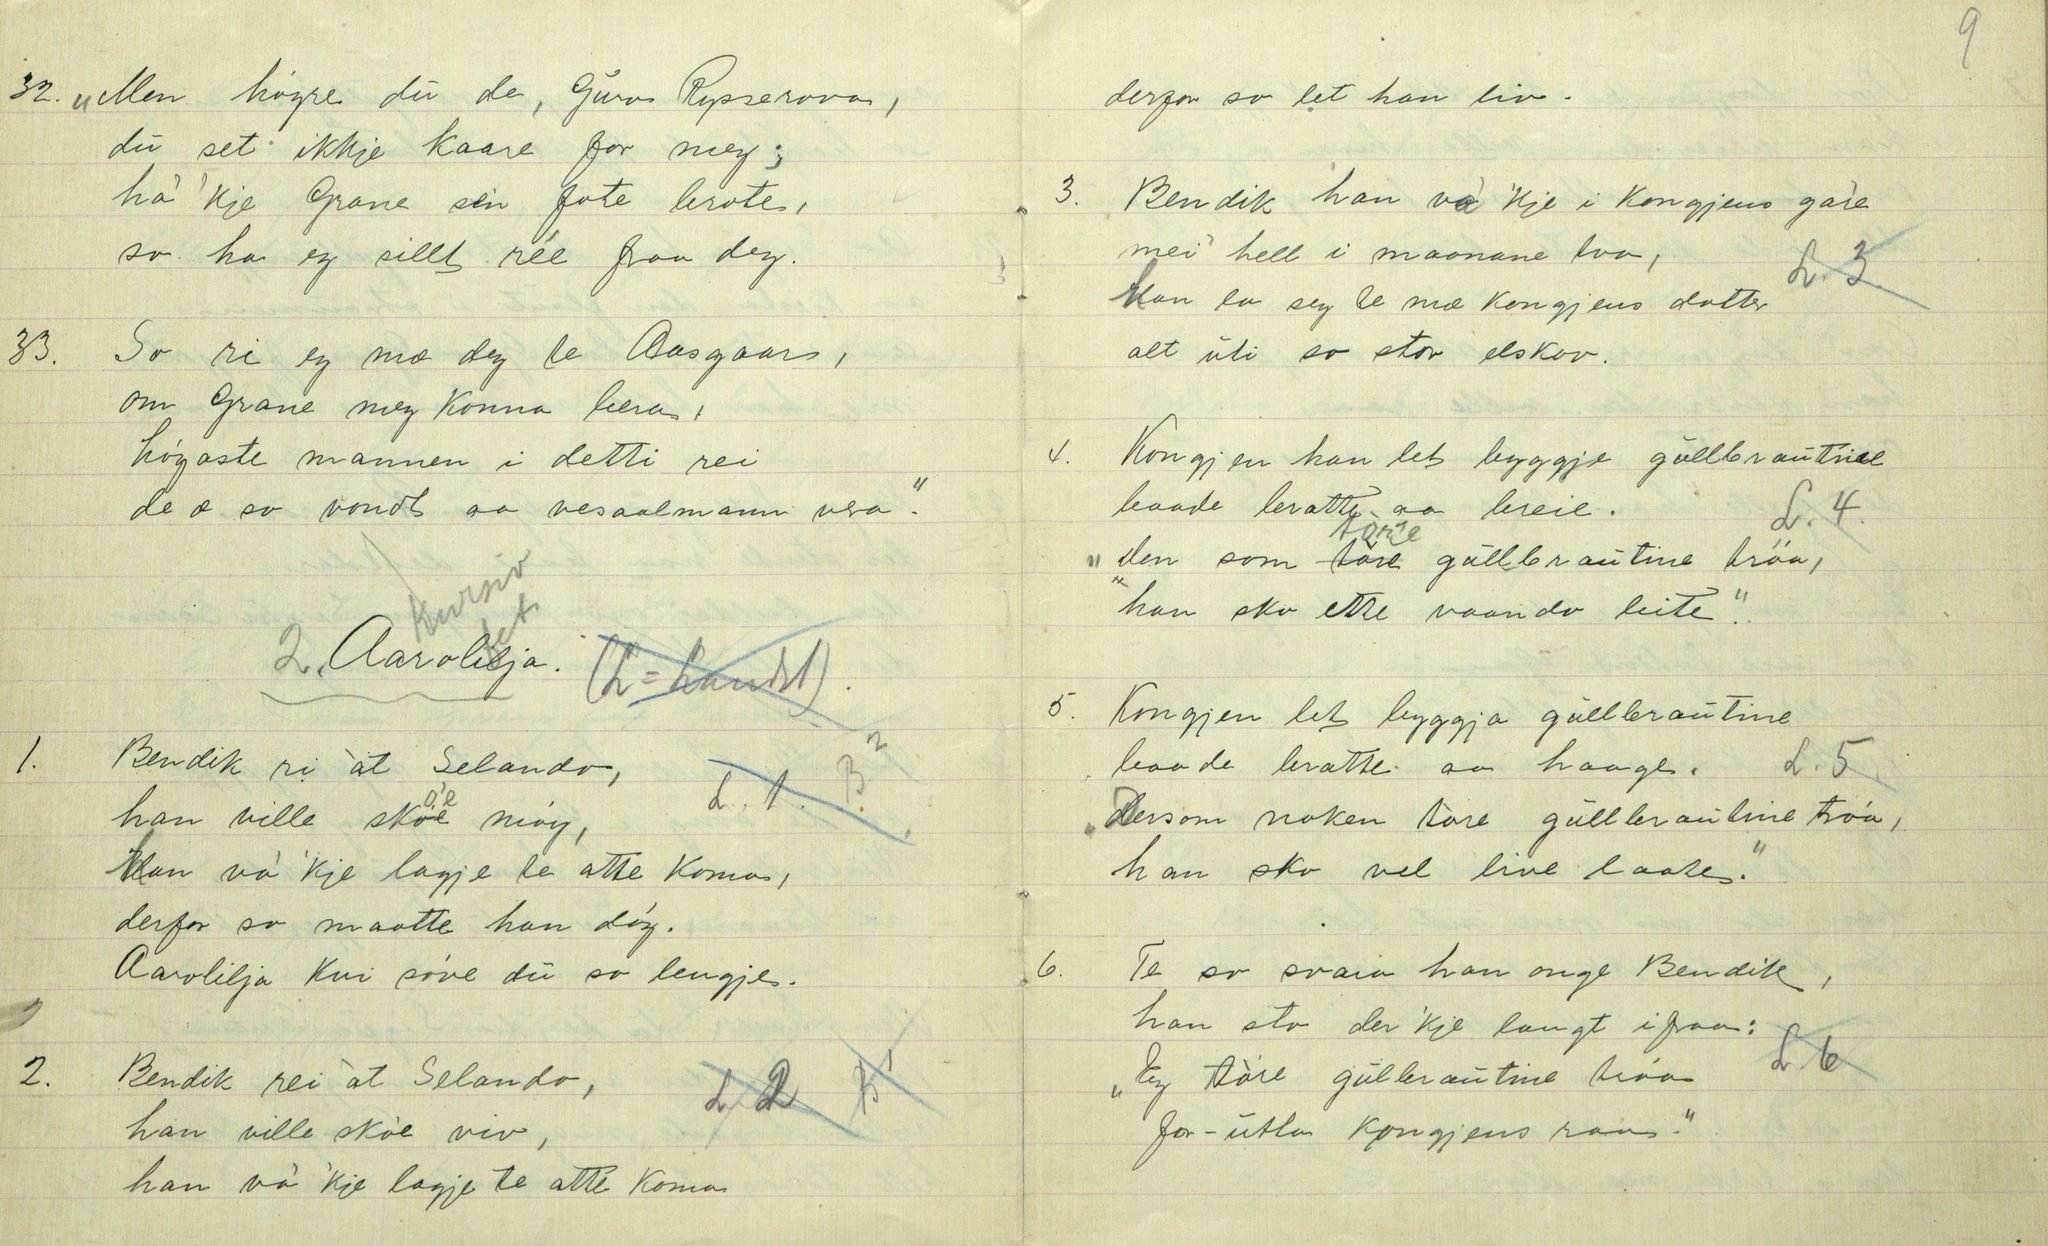 32. „Men høgre du de, Guro Rysserova,
du set ikkje kaare for meg;
ha 'kje Grane sin fote brote,
so ha eg sillt rée fraa deg.
33. So ri eg mæ deg te Aasgaar,
om Grane meg konna bera,
høgaste mannen i detti rei
de æ so vondt aa vesaalmann vera".
Kursiv
fet
2. Aarolilja. (L = Landst).
1. Bendik ri at Selando, L. 1. B 2
han ville skóe møy,
óe
Han va 'kje lagje te atte koma,
derfor so maatte han døy.
Aarolilja kvi søve du so lengje.
2. Bendik rei at Selando, L. 2 B 1
han ville skòe viv,
han va 'kje lagje te atte koma
9
derfor so let han liv.
3. Bendik han va 'kje i kongjens gare
mei' hell i maanane tvo, L. 3
Han la seg te mæ kongjens dotter
alt uti so stor elskov.
4. Kongjen han let byggje gullbrautine
baade bratte aa breie. L. 4.
tøre
„den som tore gullbrautine trøa,
"han sko ette vaando leite".
5. Kongjen let byggja gullbrautine
baade bratte aa haage. L. 5.
„Dersom noken tore gullbrautine trøa,
han sko vel live laate."
6. Te so svara han onge Bendik,
han sto der 'kje langt ifraa: L. 6
„Eg tore gullbrautine trøa
for-uta kongjens raa."